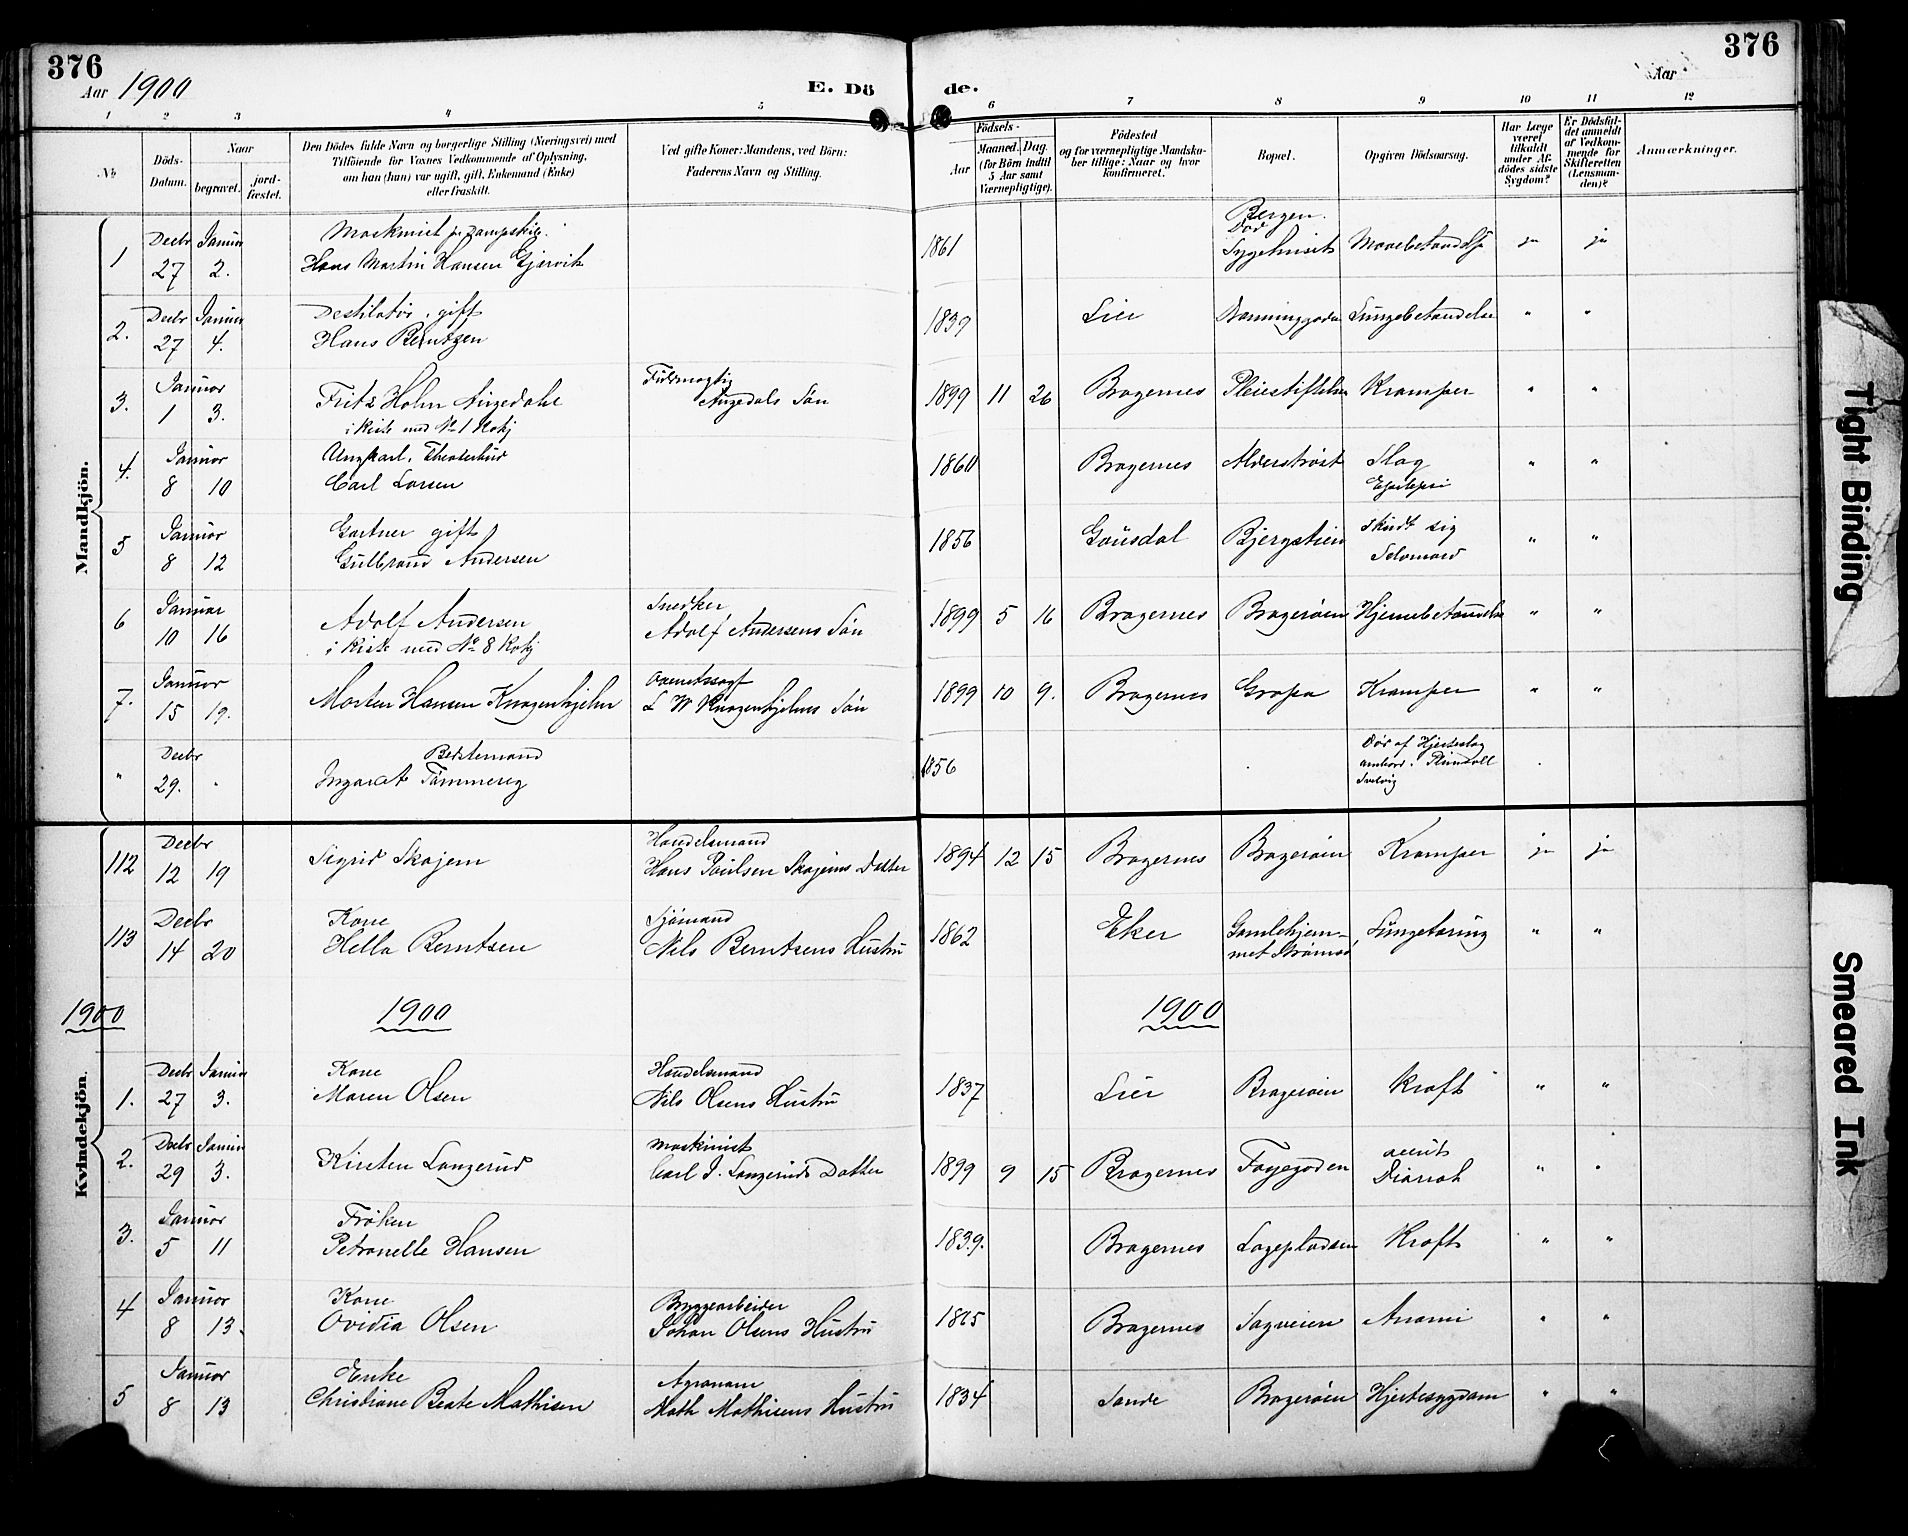 376
376
Aar 1900
E. Dö
de.
Aar
1 2 3 4 5 6 7 8 9 10 11 12
№
Döds-
Datum.
Naar
begravet.
jord-
fæstet.
Den Dödes fulde Navn og borgerlige Stilling (Næringsvei) med
Tilföiende for Voxnes Vedkommende af Oplysning,
om han (hun) var ugift, gift, Enkemand (Enke)
eller fraskilt.
Ved gifte Koner: Mandens, ved Börn:
Faderens Navn og Stilling.
Födsels-
Aar
Maaned.
Dag.
(for Börn indtil
5 Aar samt
Værnepligtige).
Födested
og for værnepligtige Mandska-
ber tillige: Naar og hvor
konfirmeret.
Bopæl.
Opgiven Dödsaarsag.
Har Læge
været
tilkaldt
under Af-
dödes sidste
Sygdom?
Er Dödsfal-
det anmeldt
af Vedkom-
mende for
Skifteretten
(Lensman-
den)?
Anmærkninger.
Mandkjön.
1 Decbr 27 Januar 2. Maskinist Hans Martin Hansen Gjørvik 1861 Bergen. Sygehuset ja ja
2. Decbr 27 Januar 4. Destilatør, gift Hans Berntzen 1839 Lier Lungebetændelse " "
3. Januar 1 3. Fritz Holm Angedahl i Kiste med № 1 Kvkj Fuldmægtig Angedals Søn 1899 11 26 Bragernes Pleiestiftelsen Kramper " "
4. Januar 8 10 Carl Larsen 1860 Bragernes Slag Epilepsi " "
5 Januar 8 12 Gartner gift Gulbrand Andersen 1856 Gausdal Bjergstien Skudt sig Selvmord " "
6 Januar 10 16 Adolf Andersen i Kiste med № 8 Kvkj Snedker Adolf Andersens Søn 1899 5 16 Bragernes Bragerøen Hjernebetændelse " "
7. Januar 15 19. Morten Hansen Knagenhjelm L W Knagenhjelms Søn 1899 10 9. Bragernes Gropa Kramper " "
" Decbr 29. Bestemand 1856 Død af Hjerteslag ombord Svelvig
Kvindekjön.
112 Decbr 12 19 Sigrid Skajem Handelsmand Hans Poulsen Skajems Datter 1894 12 15 Bragernes Bragerøen Kramper ja ja
113 Decbr 14 20 Kone Hella Berntsen Sjømand Nils Berntsens Hustru 1862 Eker Gamlehjem-
met Strømsø Lungetæring " "
1900 1900 1900
1. Decbr 27 Januar 3. Kone Maren Olsen Handelsmand Nils Olsens Hustru 1837 Lier Bragerøen Kræft " "
2. Decbr 29 Januar 3. Kirsten Langerud Maskinist Carl J. Langeruds Datter 1899 9 15 Bragernes acut Diarrh " "
3. Januar 5 11 Frøken Petronelle Hansen 1839. Bragernes Løgepladsen Kræft " "
4 Januar 8 13. Kone Ovidia Olsen Byggearbeider Johan Olsens Hustru Bragernes Sagveien Anæmi " "
5 Januar 8 13 Enke Christiane Beate Mathisen Agronom Math Mathisens Hustru 1834 Sande Bragerøen Hjertesygdom " "
Tight Binding
Smeared Ink